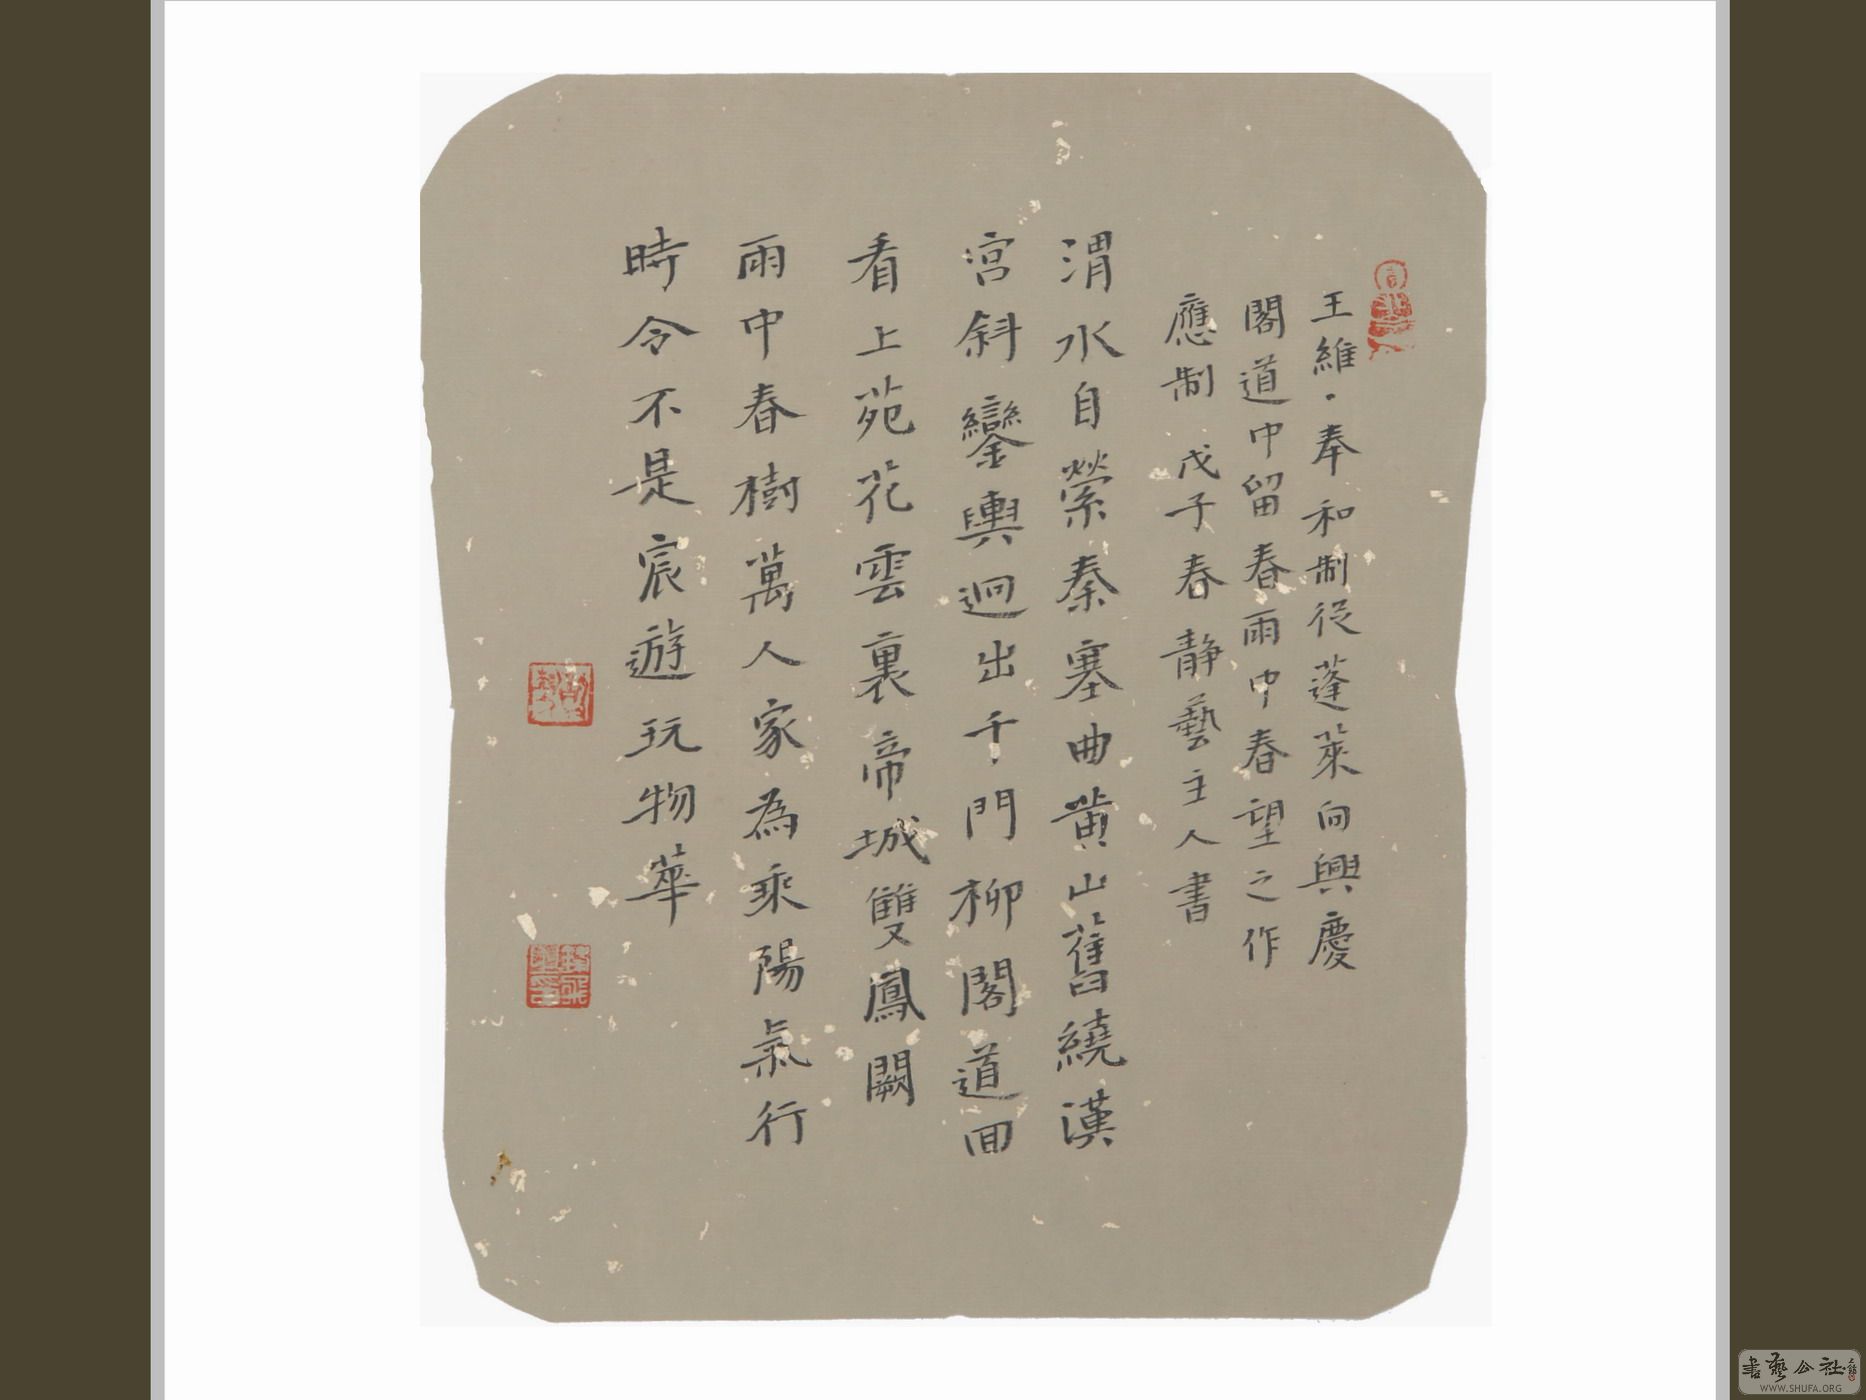 王維·奉和制從蓬萊向興慶
閣道中留春雨中春望之作
應制 戊子春靜藝主人書
渭水自縈秦塞曲黃山舊繞漢
宮斜鑾輿迥出千門柳閣道回
看上苑花雲裏帝城雙鳳闕
雨中春樹萬人家為乘陽氣行
時令不是宸遊玩物華
書藝公社
WWW.SHUFA.ORG